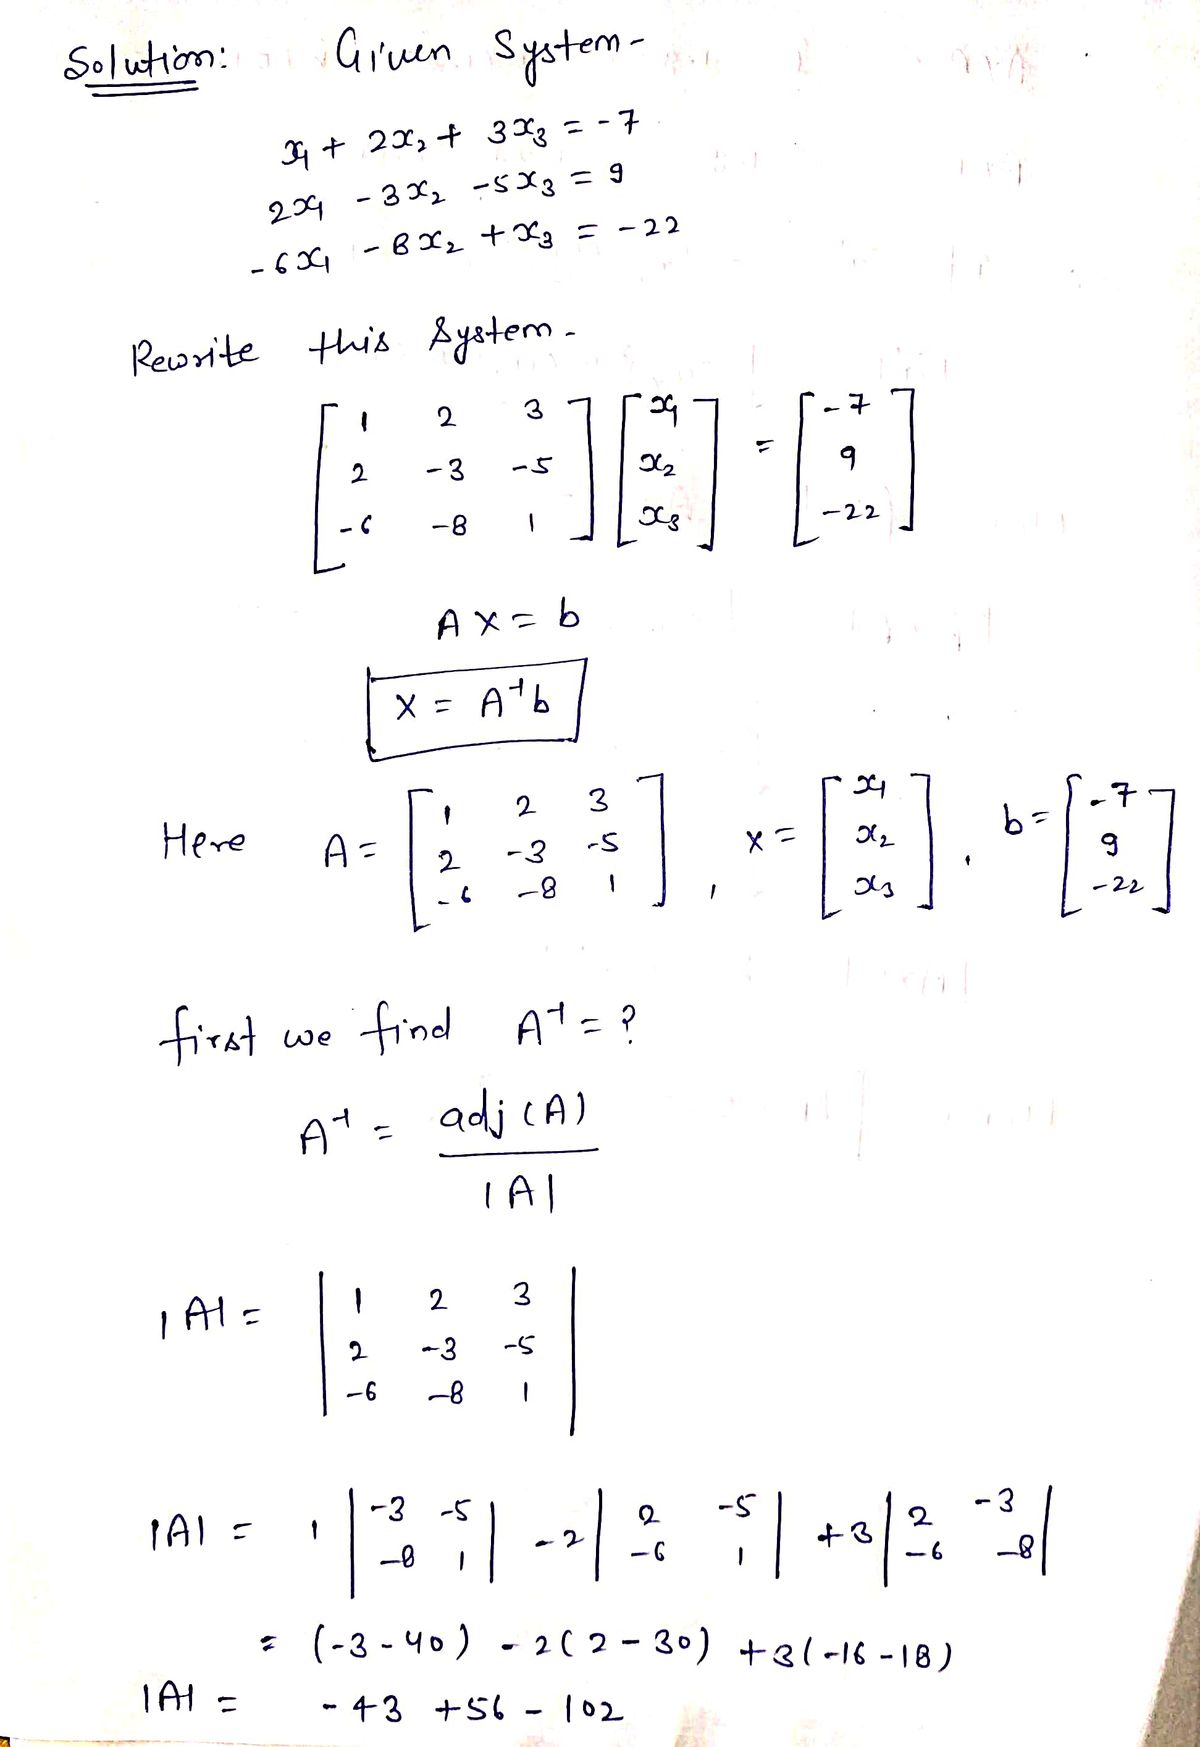 Solution: Given System-
x₁ + 2x₂ + 3x₃ = -7
2x₁ - 3x₂ -5x₃ = 9
-6x₁ - 8x₂ + x₃ = -22
Rewrite this System-
[ 1 2 3 ] [ x₁ ] = [ -7 ]
[ 2 -3 -5 ] [ x₂ ] [ 9 ]
[ -6 -8 1 ] [ x₃ ] [ -22 ]
A X = b
X = A⁻¹b
Here A = [ 1 2 3 ] , X = [ x₁ ] , b = [ -7 ]
[ 2 -3 -5 ] [ x₂ ] [ 9 ]
[ -6 -8 1 ] [ x₃ ] [ -22 ]
first we find A⁻¹ = ?
A⁻¹ = adj (A)
|A|
|A| = | 1 2 3 |
| 2 -3 -5 |
| -6 -8 1 |
|A| = 1 | -3 -5 | -2 | 2 -5 | +3 | 2 -3 |
| -8 1 | | -6 1 | | -6 -8 |
= (-3-40) - 2(2-30) +3(-16-18)
|A| = -43 +56 - 102